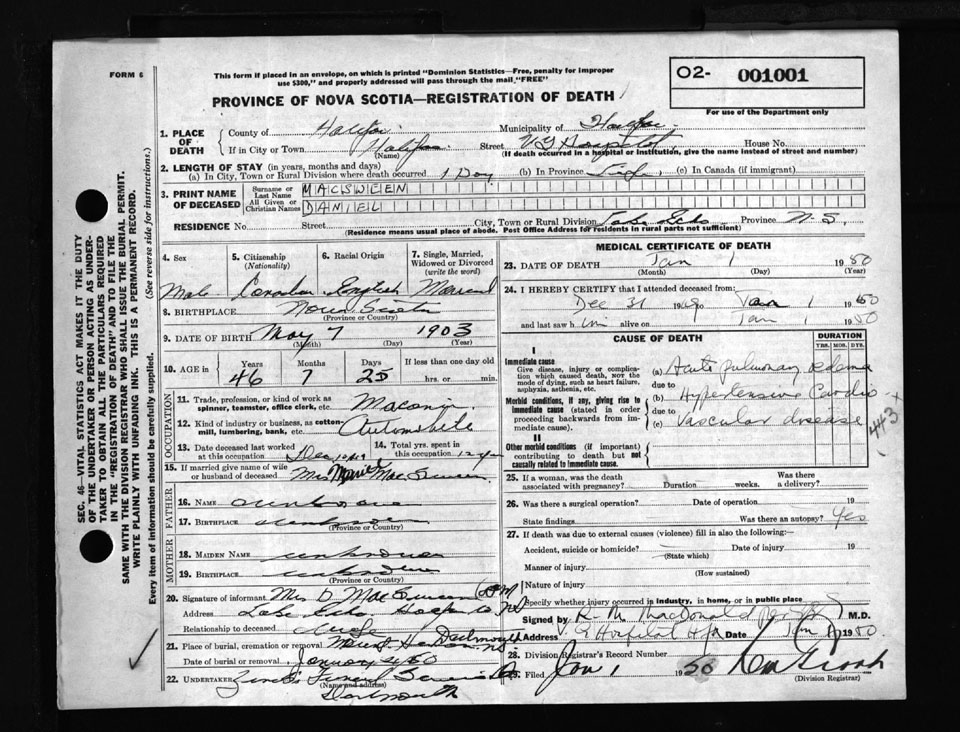 FORM 6
This form if placed in an envelope, on which is printed "Dominion Statistics—Free, penalty for improper
use $300," and properly addressed will pass through the mail "FREE"
PROVINCE OF NOVA SCOTIA—REGISTRATION OF DEATH
O2- 001001
For use of the Department only
1. PLACE OF DEATH
County of Halifax
Municipality of Halifax
If in City or Town Halifax (Name)
Street V G Hospital House No.
(If death occurred in a hospital or institution, give the name instead of street and number)
2. LENGTH OF STAY (in years, months and days)
(a) In City, Town or Rural Division where death occurred 1 Day (b) In Province Life (c) In Canada (if immigrant)
3. PRINT NAME OF DECEASED
Surname or Last Name MACSWEEN
All Given or Christian Names DANIEL
RESIDENCE No. Street City, Town or Rural Division Lake Echo Province N.S.
(Residence means usual place of abode. Post Office Address for residents in rural parts not sufficient)
4. Sex
Male
5. Citizenship (Nationality)
Canadian
6. Racial Origin
English
7. Single, Married, Widowed or Divorced (write the word)
Married
8. BIRTHPLACE Nova Scotia
(Province or Country)
9. DATE OF BIRTH May 7 1903
(Month) (Day) (Year)
10. AGE in Years Months Days If less than one day old
46 7 25 hrs. or min.
OCCUPATION
11. Trade, profession or kind of work as spinner, teamster, office clerk, etc.
12. Kind of industry or business, as cotton mill, lumbering, bank, etc. Automobile
13. Date deceased last worked at this occupation
14. Total yrs. spent in this occupation
15. If married give name of wife or husband of deceased Mrs MacSween
FATHER
16. NAME unknown
17. BIRTHPLACE unknown
(Province or Country)
MOTHER
18. MAIDEN NAME unknown
19. BIRTHPLACE unknown
(Province or Country)
20. Signature of informant Mrs D MacSween
Address Lake Echo Halifax Co NS
Relationship to deceased Wife
21. Place of burial, cremation or removal Dartmouth NS
Date of burial or removal January 4/50
22. UNDERTAKER Funeral Service
(Name and address)
Dartmouth
MEDICAL CERTIFICATE OF DEATH
23. DATE OF DEATH Jan 1 1950
(Month) (Day) (Year)
24. I HEREBY CERTIFY that I attended deceased from:
Dec 31 1949 to Jan 1 1950
and last saw him alive on Jan 1 1950
CAUSE OF DEATH
DURATION
YRS. MOS. DYS.
I
Immediate cause
Give disease, injury or complication which caused death, not the mode of dying, such as heart failure, asphyxia, asthenia, etc.
(a) Acute pulmonary edema
due to
Morbid conditions, if any, giving rise to immediate cause (stated in order proceeding backwards from immediate cause).
(b) Hypertensive Cardio
due to
(c) Vascular disease
443 X
II
Other morbid conditions (if important) contributing to death but not causally related to immediate cause.
25. If a woman, was the death associated with pregnancy? Duration weeks. Was there a delivery?
26. Was there a surgical operation? Date of operation 19
State findings Was there an autopsy? Yes
27. If death was due to external causes (violence) fill in also the following:—
Accident, suicide or homicide? Date of injury 19
(State which)
Manner of injury
(How sustained)
Nature of injury
Specify whether injury occurred in industry, in home, or in public place
Signed by R. M. MacDonald M.D.
Address V. G Hospital Hfx Date Jan 1 1950
28. Division Registrar's Record Number
29. Filed Jan 1 1950
(Division Registrar)
SEC. 46—VITAL STATISTICS ACT MAKES IT THE DUTY
OF THE UNDERTAKER OR PERSON ACTING AS UNDERTAKER
TO OBTAIN ALL THE PARTICULARS REQUIRED
IN THE "REGISTRATION OF DEATH" AND TO FILE THE
SAME WITH THE DIVISION REGISTRAR WHO SHALL ISSUE THE BURIAL PERMIT.
WRITE PLAINLY WITH UNFADING INK. THIS IS A PERMANENT RECORD.
Every item of information should be carefully supplied. (See reverse side for instructions.)